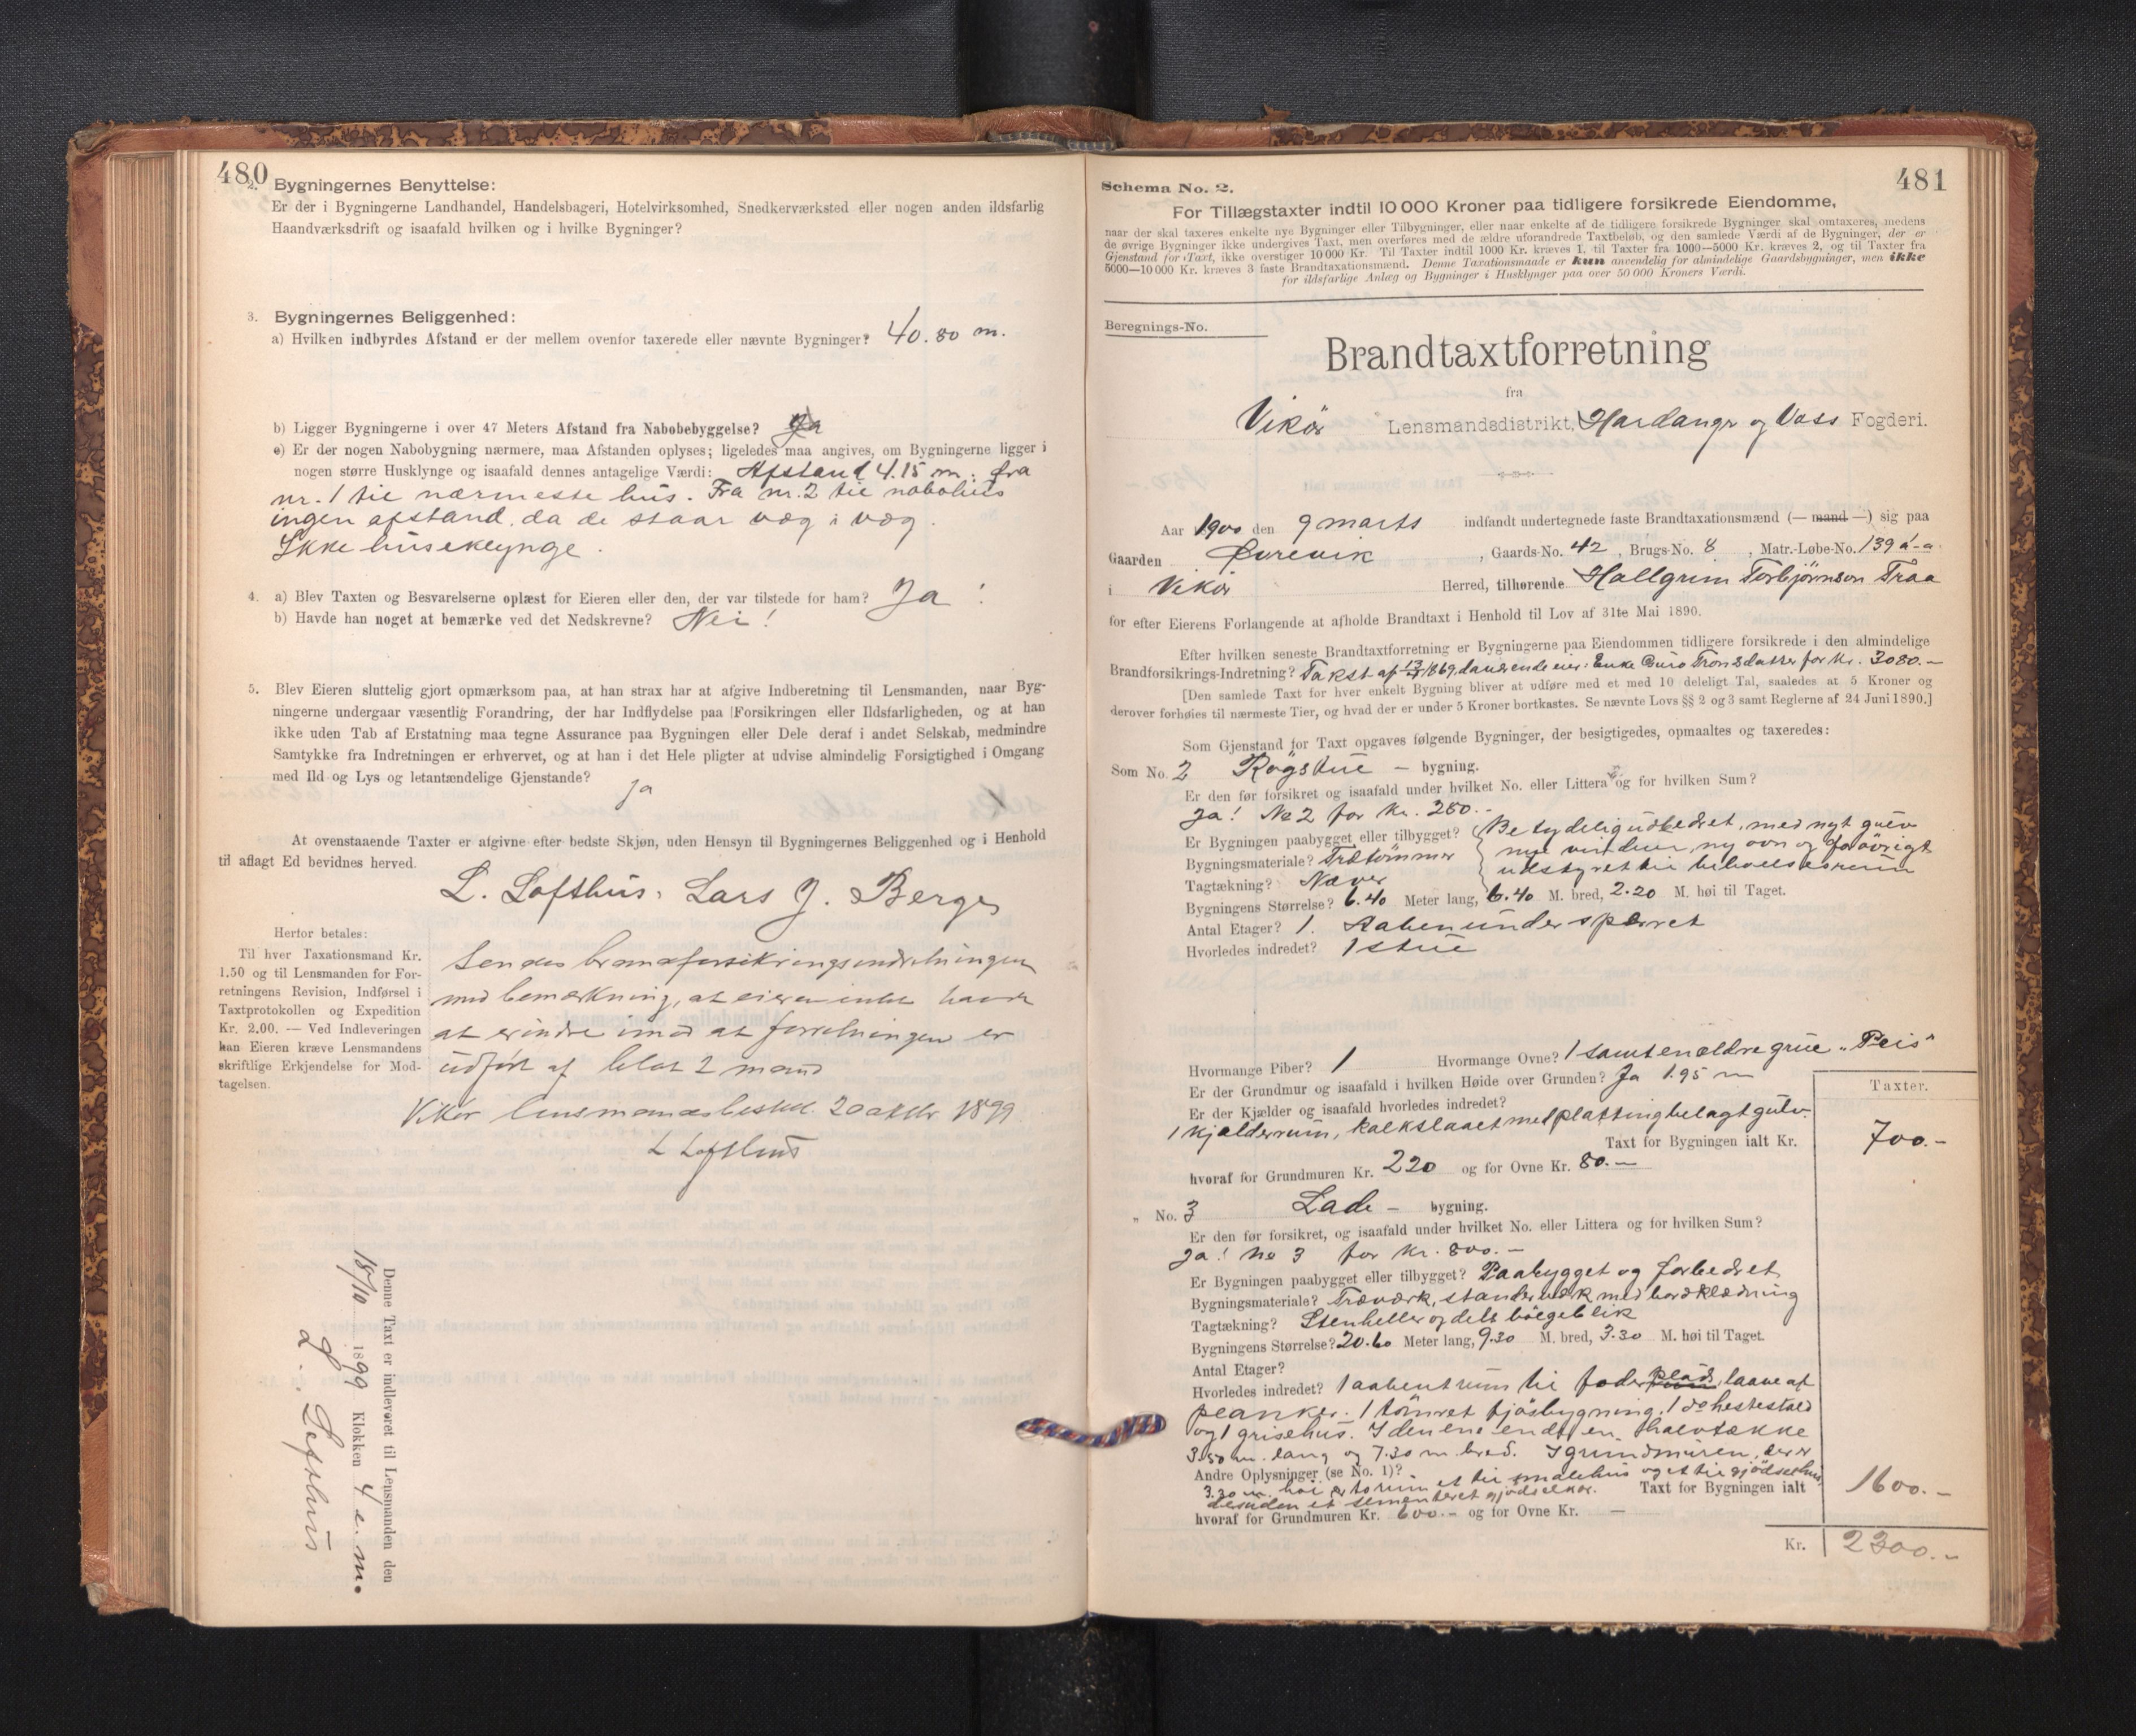 480
2. Bygningernes Benyttelse:
Er der i Bygningerne Landhandel, Handelsbageri, Hotelvirksomhed, Snedkerværksted eller nogen anden ildsfarlig
Haandværksdrift og isaafald hvilken og i hvilke Bygninger?
3. Bygningernes Beliggenhed:
a) Hvilken indbyrdes Afstand er der mellem ovenfor taxerede eller nævnte Bygninger? 40.80 m.
b) Ligger Bygningerne i over 47 Meters Afstand fra Nabobebyggelse? Ja
c) Er der nogen Nabobygning nærmere, maa Afstanden oplyses; ligeledes maa angives, om Bygningerne ligger i
nogen større Husklynge og isaafald dennes antagelige Værdi: Afstand 4.15 m. fra
nr. 1 til nærmeste hus. Fra nr. 2 til nabohus
ingen afstand, da de staar væg i væg.
Ikke huseklynge.
4. a) Blev Taxten og Besvarelserne oplæst for Eieren eller den, der var tilstede for ham? Ja!
b) Havde han noget at bemærke ved det Nedskrevne? Nei!
5. Blev Eieren sluttelig gjort opmærksom paa, at han strax har at afgive Indberetning til Lensmanden, naar Byg-
ningerne undergaar væsentlig Forandring, der har Indflydelse paa Forsikringen eller Ildsfarligheden, og at han
ikke uden Tab af Erstatning maa tegne Assurance paa Bygningen eller Dele deraf i andet Selskab, medmindre
Samtykke fra Indretningen er erhvervet, og at han i det Hele pligter at udvise almindelig Forsigtighed i Omgang
med Ild og Lys og letantændelige Gjenstande?
Ja
At ovenstaaende Taxter er afgivne efter bedste Skjøn, uden Hensyn til Bygningernes Beliggenhed og i Henhold
til aflagt Ed bevidnes herved.
L. Lofthus. Lars J. Berge
Herfor betales:
Til hver Taxationsmand Kr.
1.50 og til Lensmanden for For-
retningens Revision, Indførsel i
Taxtprotokollen og Expedition
Kr. 2.00. — Ved Indleveringen
kan Eieren kræve Lensmandens
skriftlige Erkjendelse for Mod-
tagelsen.
Sendes brandforsikringsindretningen
med bemærkning, at eieren intet havde
at erindre imod at forretningen er
udført af blot 2 mænd
Vikør lensmandsbestil. 20 oktbr 1899
L Lofthus
Denne Taxt er indleveret til Lensmanden den
18/10 1899 Klokken 4 e. m.
L. Lofthus
481
Schema No. 2.
For Tillægstaxter indtil 10 000 Kroner paa tidligere forsikrede Eiendomme,
naar der skal taxeres enkelte nye Bygninger eller Tilbygninger, eller naar enkelte af de tidligere forsikrede Bygninger skal omtaxeres, medens
de øvrige Bygninger ikke undergives Taxt, men overføres med de ældre uforandrede Taxtbeløb, og den samlede Værdi af de Bygninger, der er
Gjenstand for Taxt, ikke overstiger 10 000 Kr. Til Taxter indtil 1000 Kr. kræves 1, til Taxter fra 1000—5000 Kr. kræves 2, og til Taxter fra
5000—10 000 Kr. kræves 3 faste Brandtaxationsmænd. Denne Taxationsmaade er kun anvendelig for almindelige Gaardsbygninger, men ikke
for ildsfarlige Anlæg og Bygninger i Husklynger paa over 50 000 Kroners Værdi.
Beregnings-No.
Brandtaxtforretning
fra
Vikör Lensmandsdistrikt, Hardanger og Voss Fogderi.
Aar 1900 den 9 marts indfandt undertegnede faste Brandtaxationsmænd (— mand —) sig paa
Gaarden Øvrevik, Gaards-No. 42, Brugs-No. 8, Matr.-Løbe-No. 139 a-a
i Vikör Herred, tilhørende Hallgrim Torbjørnson Traa
for efter Eierens Forlangende at afholde Brandtaxt i Henhold til Lov af 31te Mai 1890.
Efter hvilken seneste Brandtaxtforretning er Bygningerne paa Eiendommen tidligere forsikrede i den almindelige
Brandforsikrings-Indretning? Takst af 1869, daværende eier: Enke Guro Tronsdatter for kr. 3080.—
[Den samlede Taxt for hver enkelt Bygning bliver at udføre med et med 10 deleligt Tal, saaledes at 5 Kroner og
derover forhøies til nærmeste Tier, og hvad der er under 5 Kroner bortkastes. Se nævnte Lovs §§ 2 og 3 samt Reglerne af 24 Juni 1890.]
Som Gjenstand for Taxt opgaves følgende Bygninger, der besigtigedes, opmaaltes og taxeredes:
Som No. 2 Røgstue — bygning.
Er den før forsikret og isaafald under hvilket No. eller Littera og for hvilken Sum?
Ja! No 2 for kr. 280.-
Er Bygningen paabygget eller tilbygget? Betydelig udbedret, med nyt gulv
Bygningsmateriale? Trætømmer nye vinduer, ny ovn og forøvrigt
Tagtækning? Næver udstyret til beboelsesrum
Bygningens Størrelse? 6.40 Meter lang, 6.40 M. bred, 2.20 M. høi til Taget.
Antal Etager? 1. Aaben under sperret
Hvorledes indredet? 1 stue
Hvormange Piber? 1 Hvormange Ovne? 1 samt en ældre grue „Peis"
Er der Grundmur og isaafald i hvilken Høide over Grunden? Ja 1.95 m
Er der Kjælder og isaafald hvorledes indredet?
1 kjælderrum, kalkslaaet med plattingbelagt gulv.
Taxter.
Taxt for Bygningen ialt Kr. 700.-
hvoraf for Grundmuren Kr. 220 og for Ovne Kr. 80.—
„ No. 3 Lade — bygning.
Er den før forsikret, og isaafald under hvilket No. eller Littera og for hvilken Sum?
Ja! no 3 for kr. 800.—
Er Bygningen paabygget eller tilbygget? Paabygget og forbedret
Bygningsmateriale? Træværk, standerværk med bordklædning
Tagtækning? Stenheller og dels bølgeblik
Bygningens Størrelse? 20.60 Meter lang, 9.30 M. bred, 3.30 M. høi til Taget.
Antal Etager?
Hvorledes indredet? 1 aabent rum til foder plads, laave af
planker. 1 tömret fjösbygning, 1 do hestestald
og 1 grisehus. I den ene ende en halvtække
3.50 m. lang og 7.30 m bred. I grundmuren, der er
Andre Oplysninger (se No. 1)?
3.30 m. höi er to rum et til smalehus og et til gjödselhus
desuden et sementeret gjödselkar. Taxt for Bygningen ialt 1600.—
hvoraf for Grundmuren Kr. 600.- og for Ovne Kr. —
Kr. 2300.-